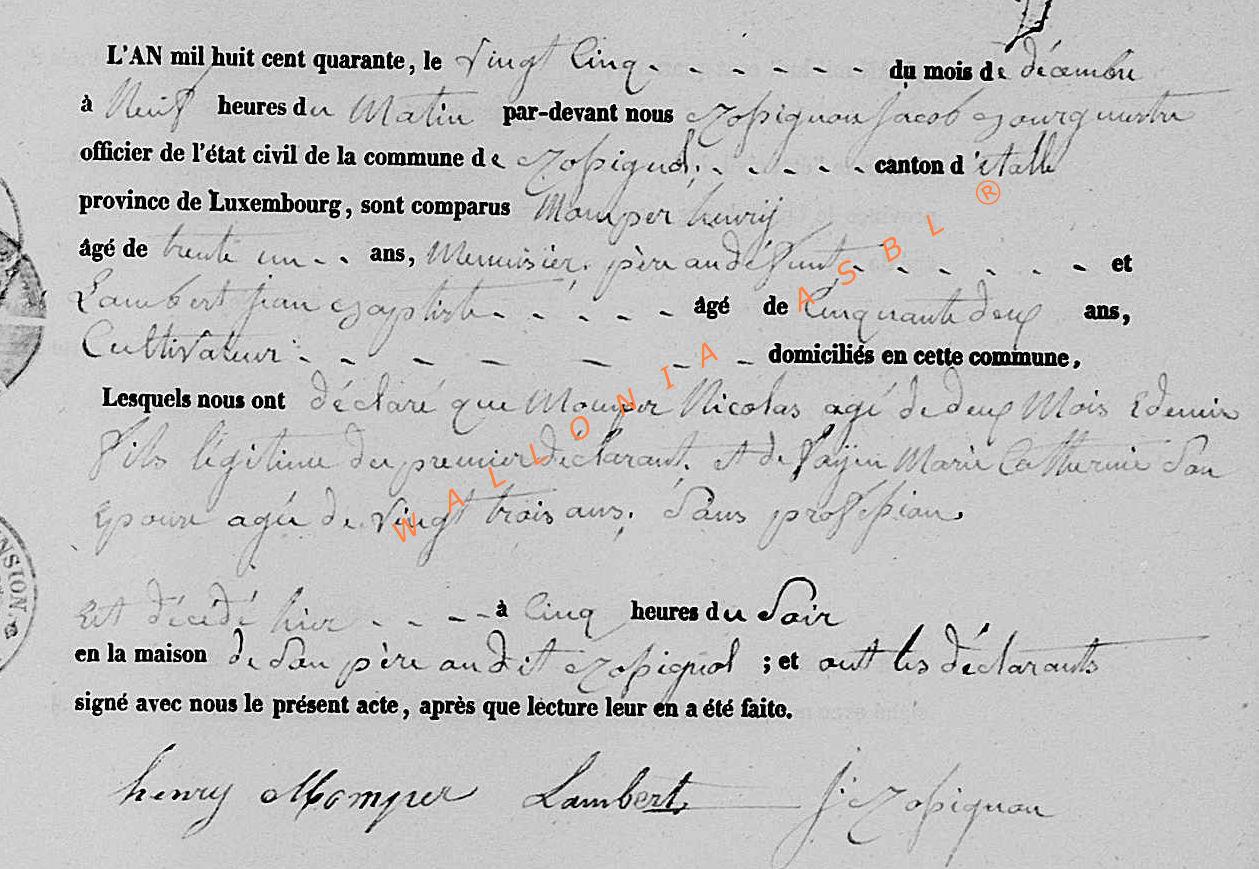 L'AN mil huit cent quarante, le vingt Cinq - - - - - - du mois de décembre
à Neuf heures du Matin par-devant nous Rossignon Jacob Bourguestre
officier de l'état civil de la commune de Rossignol, - - - - - canton d'étalle
province de Luxembourg, sont comparus Momper henrÿ
âgé de trente un - - ans, Menuisier, père au défunt - - - - - - et
Lambert jean Baptiste - - - - - âgé de Cinquante deux ans,
Cultivateur - - - - - - - domiciliés en cette commune,
Lesquels nous ont déclaré que Momper Nicolas agé de deux Mois & demie
fils légitime du premier déclarant, et de Marie Catherine Son
Epouse agée de vingt trois ans, Sans profession
Est décédé hier - - - - à Cinq heures du Soir
en la maison de Son père audit Rossignol ; et ont les déclarants
signé avec nous le présent acte, après que lecture leur en a été faite.
henry Momper Lambert J. Rossignon
WALLONIA ASBL ®
NSION.